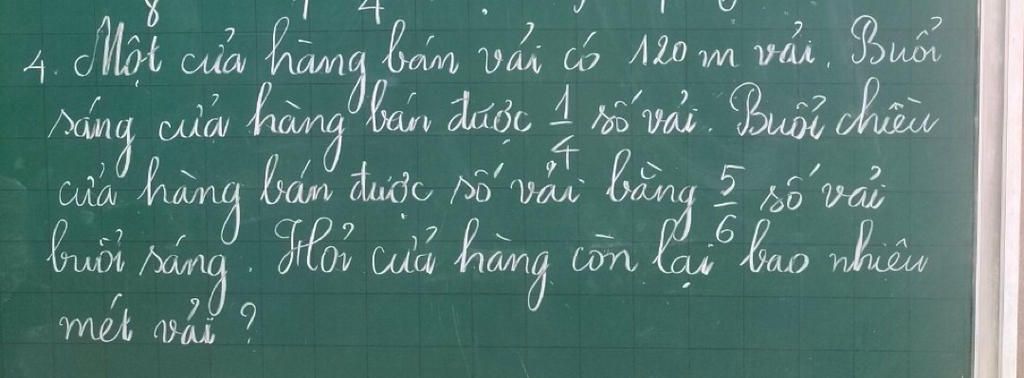 4. Một cửa hàng bán vải có 120 m vải. Buổi
sáng cửa hàng bán được 1/4 số vải. Buổi chiều
cửa hàng bán được số vải bằng 5/6 số vải
buổi sáng. Hỏi cửa hàng còn lại bao nhiêu
mét vải ?